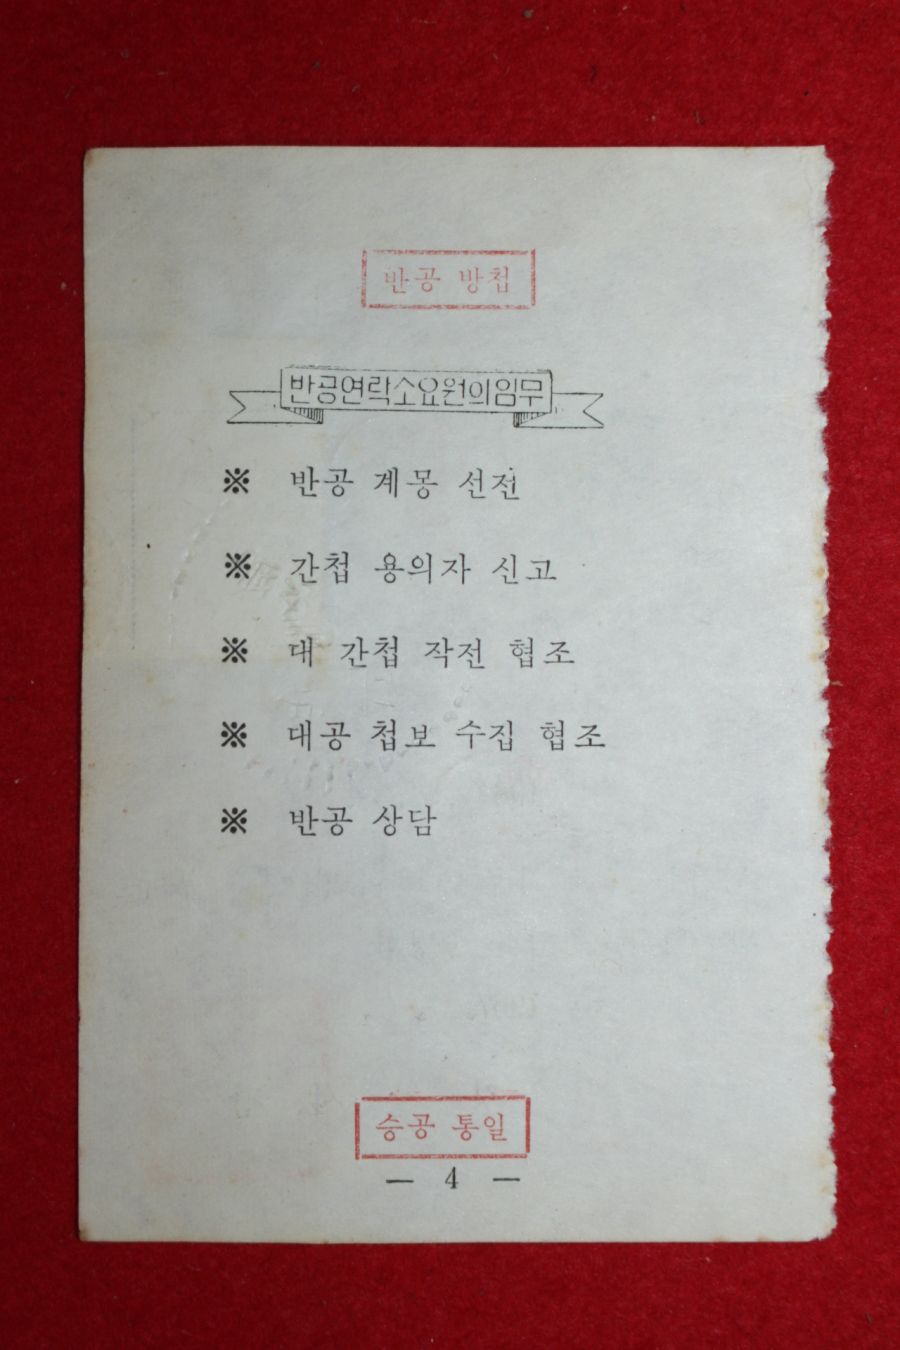 반공 방첩
반공연락소요원의임무
※ 반공 계몽 선전
※ 간첩 용의자 신고
※ 대 간첩 작전 협조
※ 대공 첩보 수집 협조
※ 반공 상담
승공 통일
— 4 —